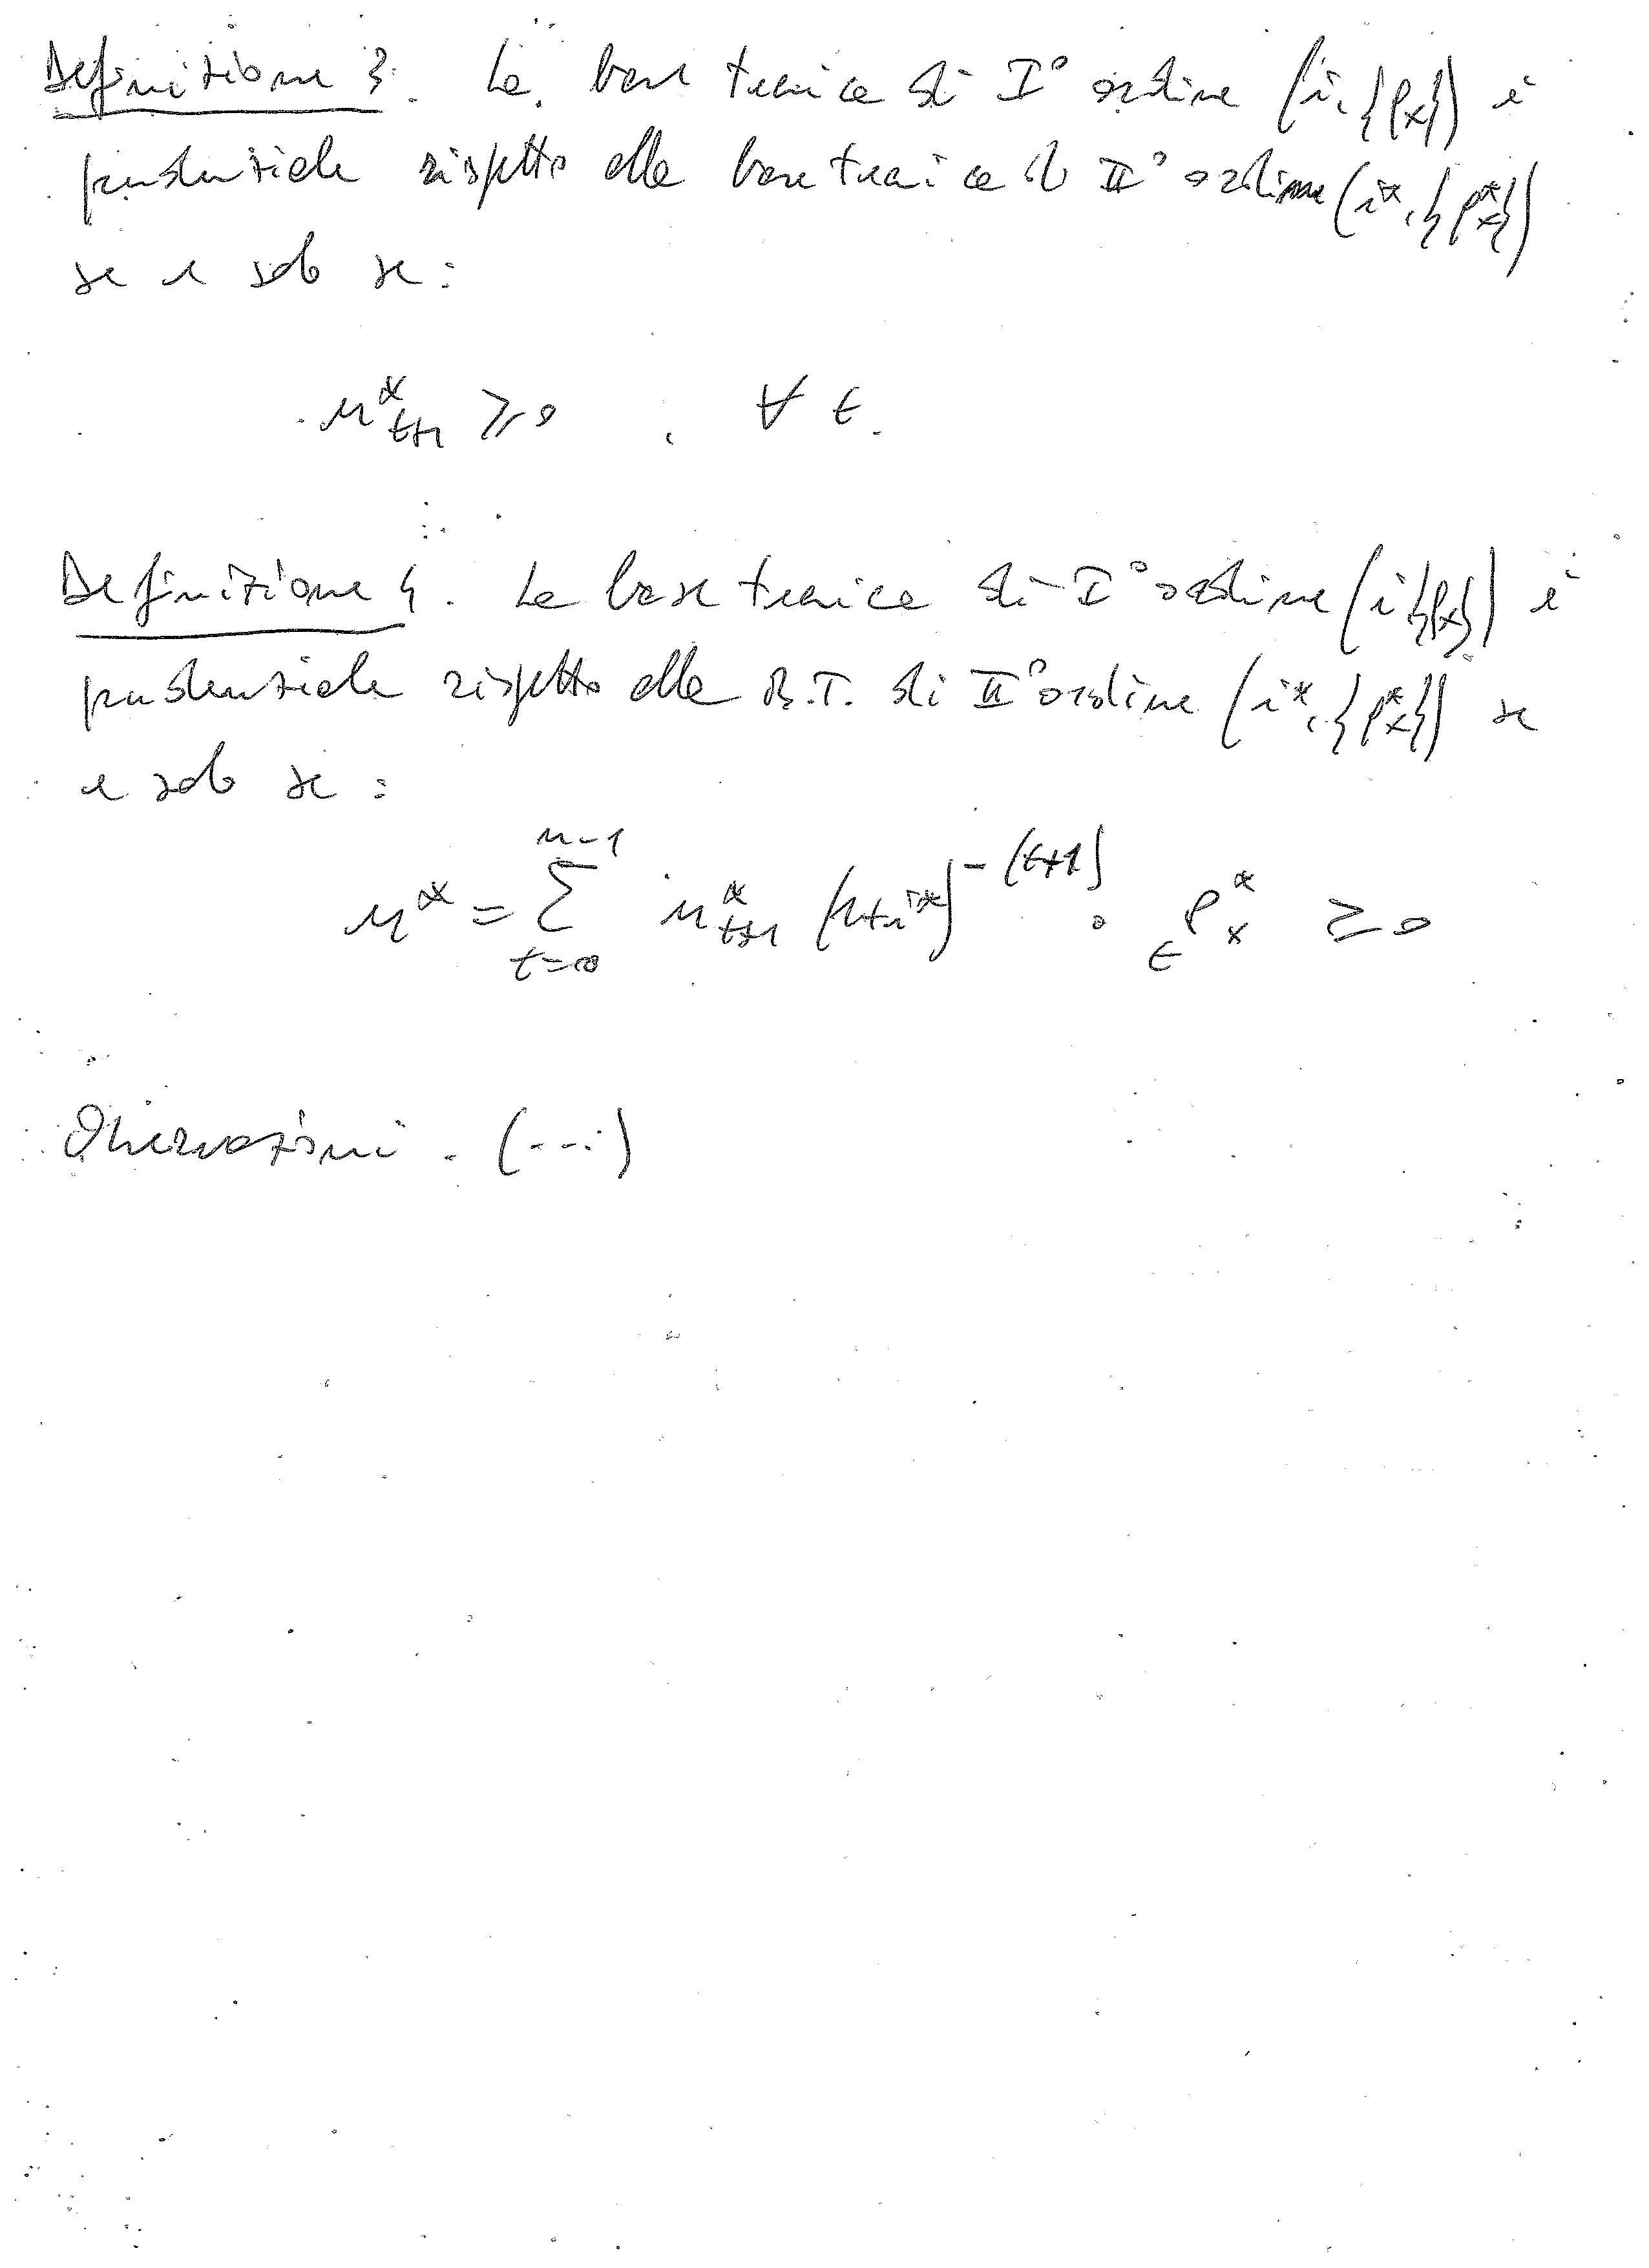 Definizione 3. La base tecnica di I° ordine (i, {p_x}) è
prudenziale rispetto alla base tecnica di II° ordine (i*, {p*_x})
se e solo se:
u*_{t+1} ≥ 0 , ∀ t.
Definizione 4. La base tecnica di I° ordine (i, {p_x}) è
prudenziale rispetto alla B.T. di II° ordine (i*, {p*_x}) se
e solo se:
u* = Σ_{t=0}^{n-1} u*_{t+1} (1+i*)^{-(t+1)} · _t p*_x ≥ 0
Osservazioni. (...)